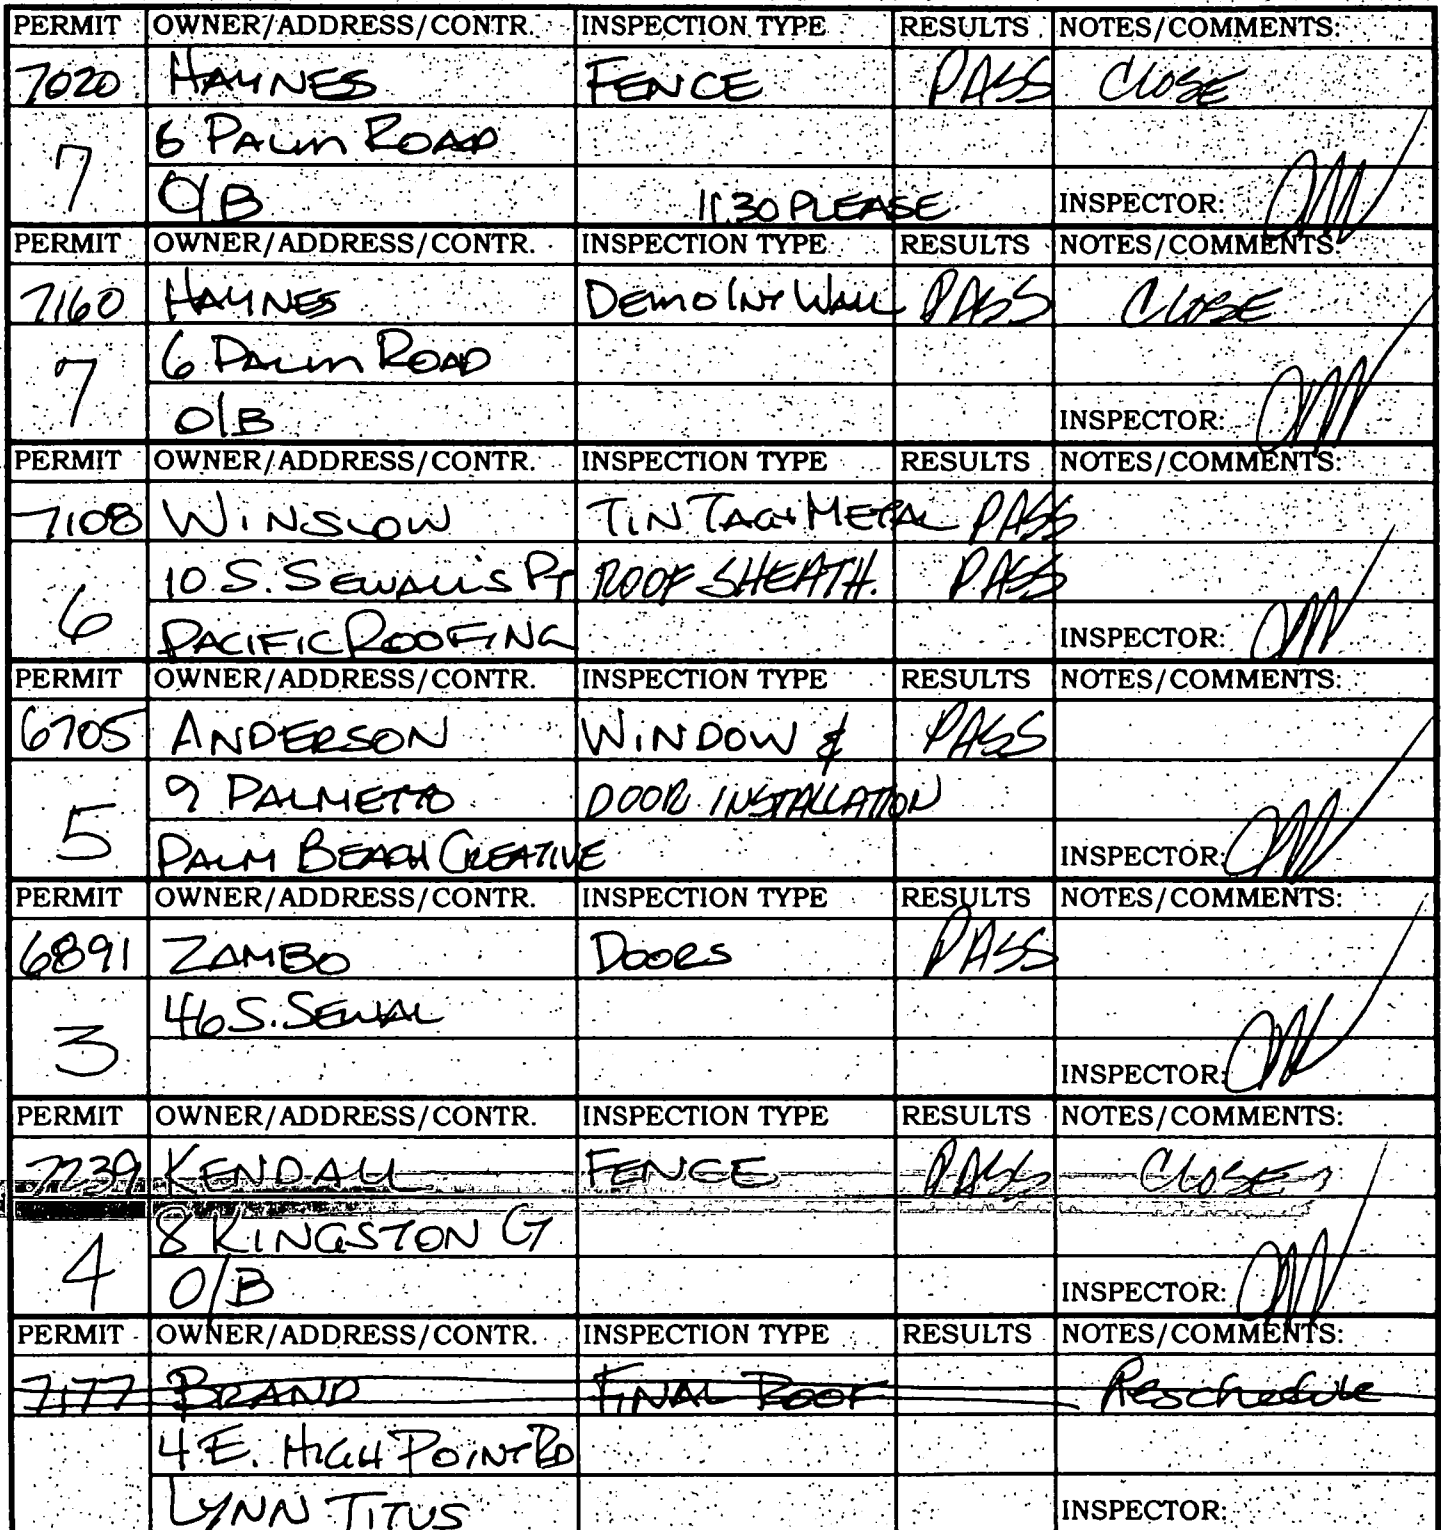 PERMIT OWNER/ADDRESS/CONTR. INSPECTION TYPE RESULTS NOTES/COMMENTS:
7020 HAYNES FENCE PASS CLOSE
7 6 PALM ROAD
O/B 11:30 PLEASE INSPECTOR:
PERMIT OWNER/ADDRESS/CONTR. INSPECTION TYPE RESULTS NOTES/COMMENTS:
7160 HAYNES DEMO INT WALL PASS CLOSE
7 6 PALM ROAD
O/B INSPECTOR:
PERMIT OWNER/ADDRESS/CONTR. INSPECTION TYPE RESULTS NOTES/COMMENTS:
7108 WINSLOW TIN TAG & METAL PASS
6 10 S. SEWALL'S PT ROOF SHEATH. PASS
PACIFIC ROOFING INSPECTOR:
PERMIT OWNER/ADDRESS/CONTR. INSPECTION TYPE RESULTS NOTES/COMMENTS:
6705 ANDERSON WINDOW & PASS
5 9 PALMETTO DOOR INSTALLATION
PALM BEACH CREATIVE INSPECTOR:
PERMIT OWNER/ADDRESS/CONTR. INSPECTION TYPE RESULTS NOTES/COMMENTS:
6891 ZAMBO DOORS PASS
3 46 S. SEWAL
INSPECTOR:
PERMIT OWNER/ADDRESS/CONTR. INSPECTION TYPE RESULTS NOTES/COMMENTS:
7239 KENDALL FENCE PASS CLOSE
4 8 KINGSTON CT
O/B INSPECTOR:
PERMIT OWNER/ADDRESS/CONTR. INSPECTION TYPE RESULTS NOTES/COMMENTS:
7177 BRAND FINAL ROOF Reschedule
4 E. HIGH POINT RD
LYNN TITUS INSPECTOR: